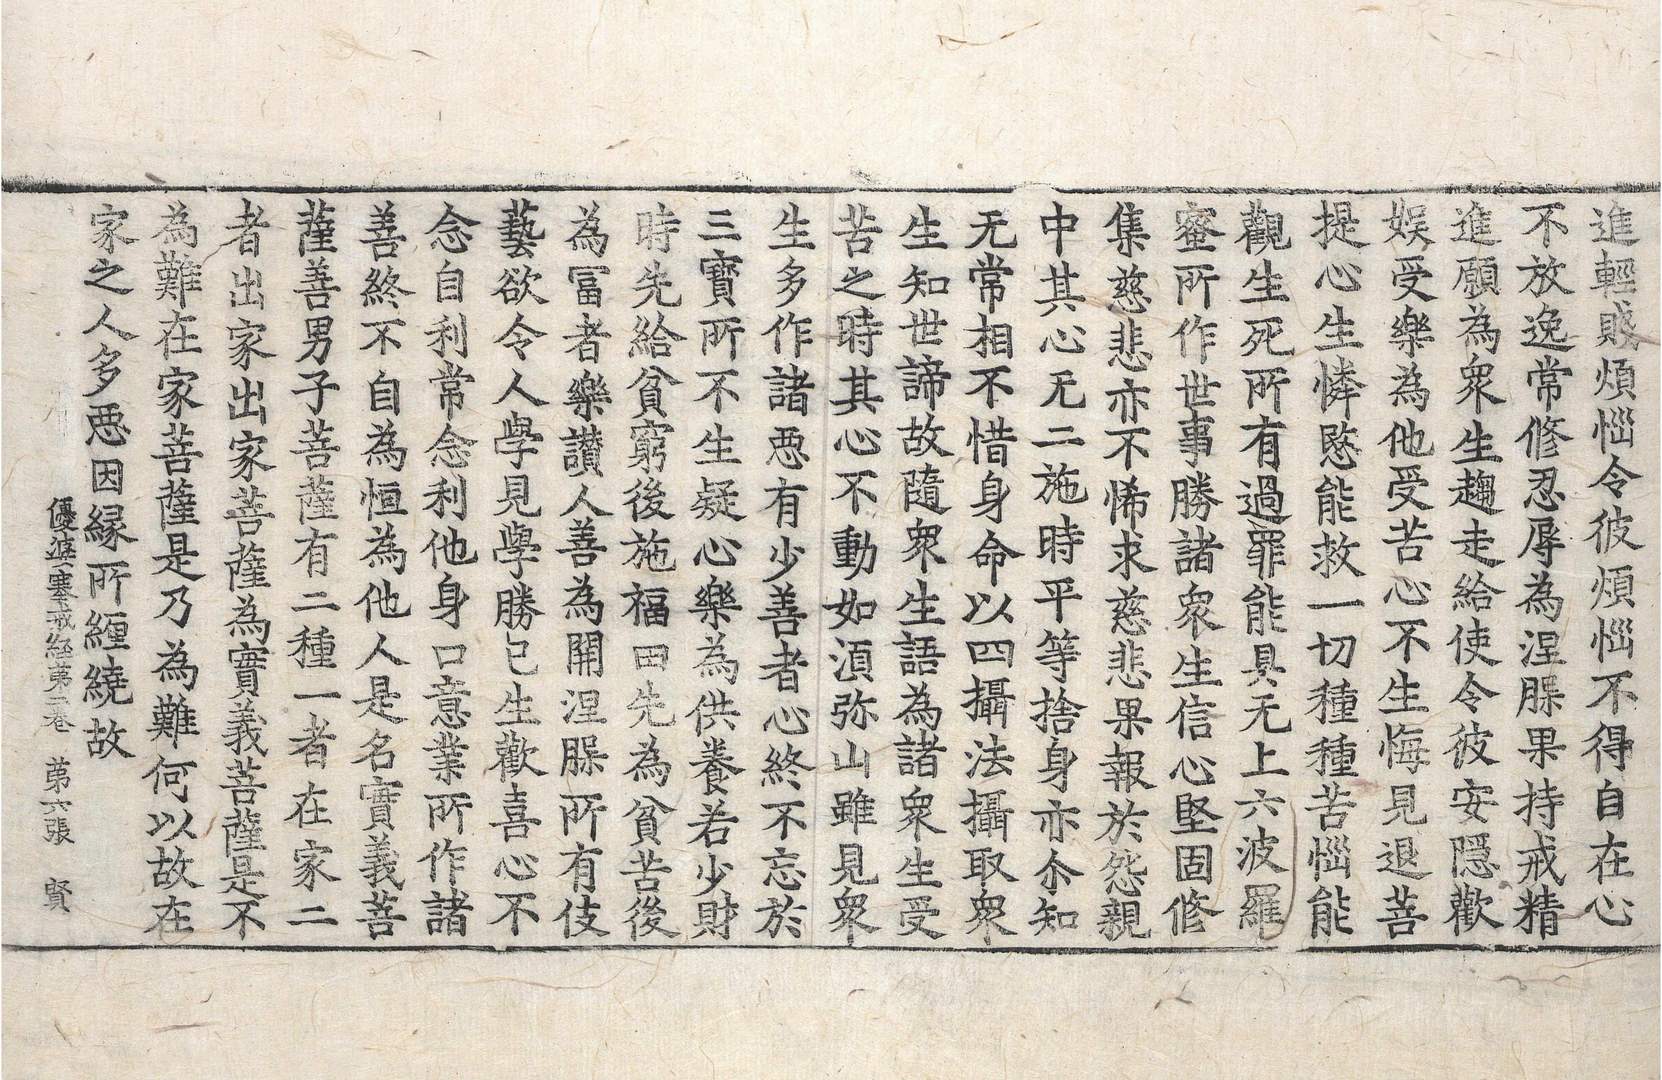 進輕賤煩惱令彼煩惱不得自在心
不放逸常修忍辱為涅脲果持戒精
進願為衆生趨走給使令彼安隱歡
娱受樂為他受苦心不生悔見退菩
提心生憐愍能救一切種種苦惱能
觀生死所有過罪能具无上六波羅
蜜所作世事勝諸衆生信心堅固修
集慈悲亦不悕求慈悲果報於怨親
中其心无二施時平等捨身亦尒知
无常相不惜身命以四攝法攝取衆
生知世諦故隨衆生語為諸衆生受
苦之時其心不動如湏弥山雖見衆
生多作諸恶有少善者心終不忘於
三寶所不生疑心樂為供養若少財
時先給貧窮後施福田先為貧苦後
為冨者樂讃人善為開涅脲所有伎
藝欲令人學見學勝已生歡喜心不
念自利常念利他身口意業所作諸
善終不自為恒為他人是名實義菩
薩善男子菩薩有二種一者在家二
者出家出家菩薩為實義菩薩是不
為難在家菩薩是乃為難何以故在
家之人多恶因縁所纏繞故
優婆塞戒經第二卷 第六張 賢